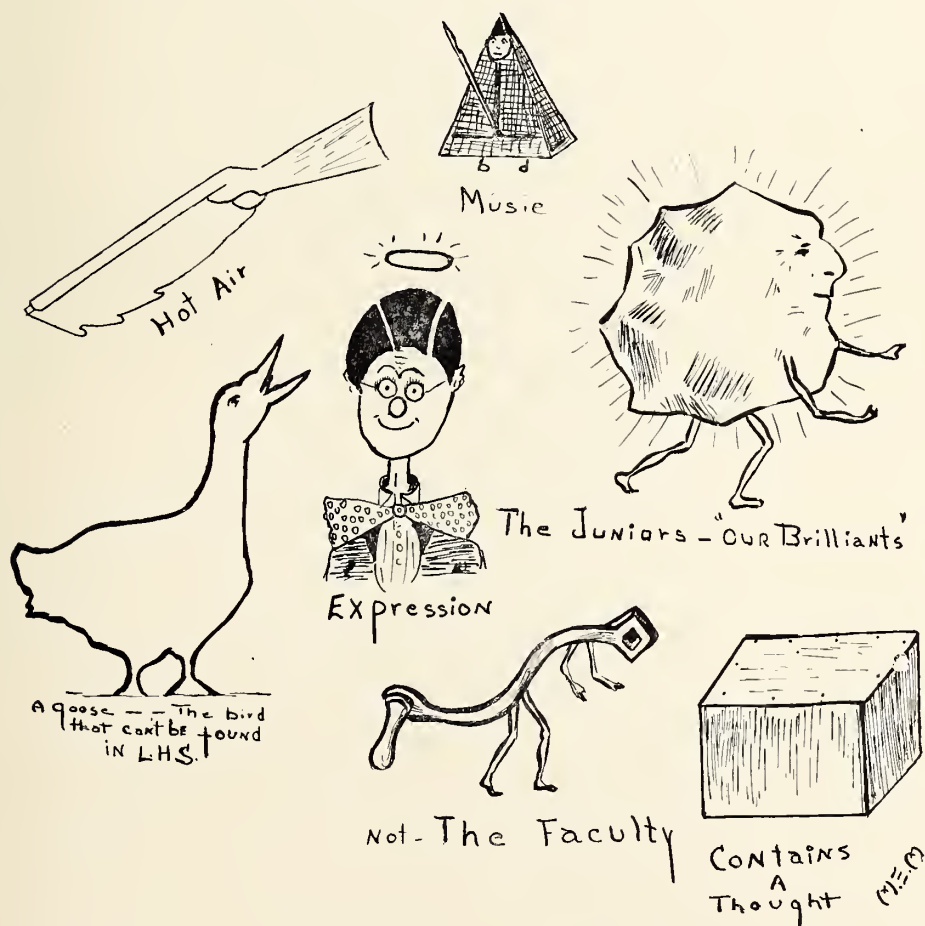 Music
Hot Air
The Juniors - "OUR Brilliants"
Expression
A goose - - The bird
that can't BE found
iN L.H.S.
Not - The Faculty
CONTAINS
A
Thought